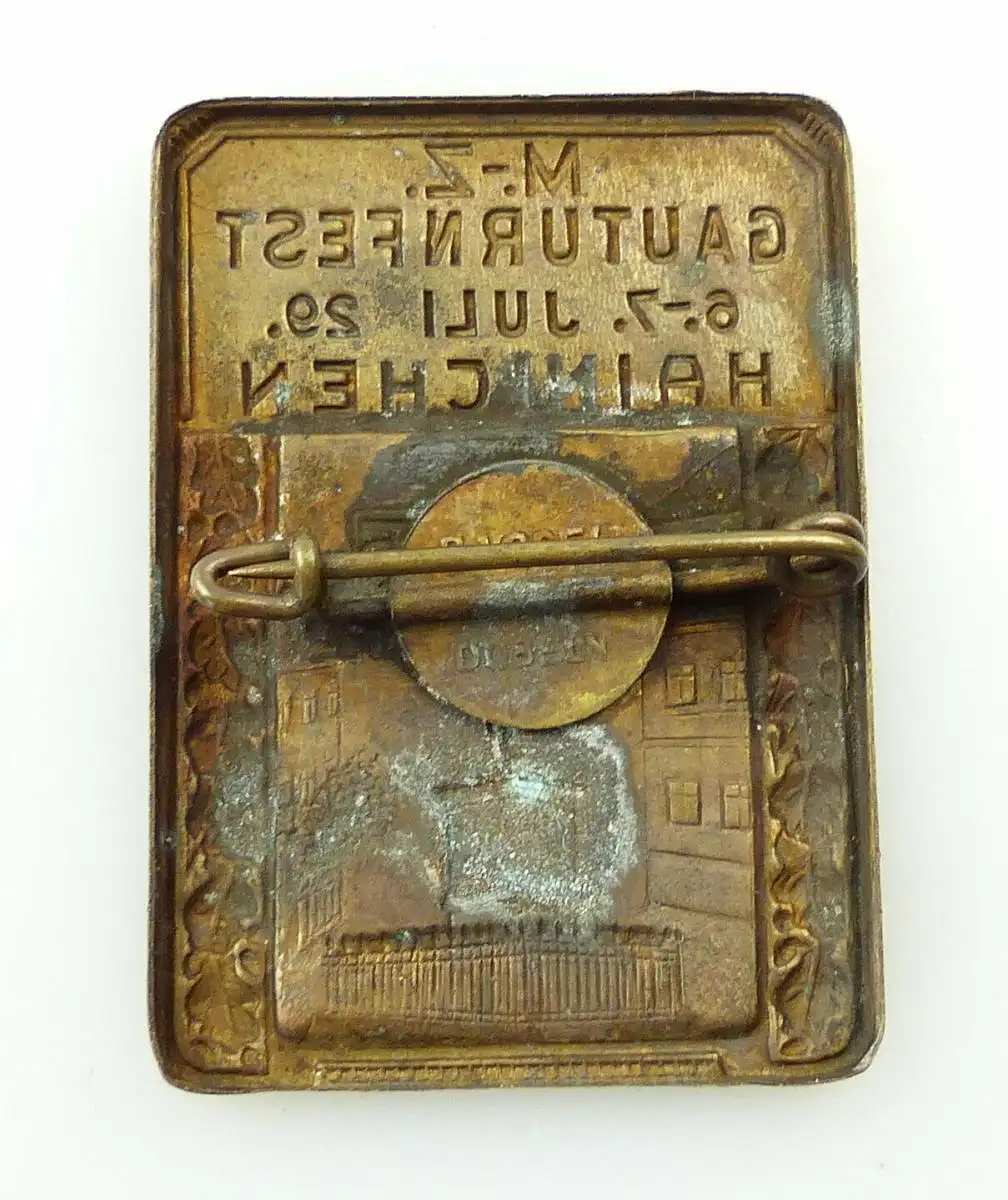 M.-Z.
GAUTURNFEST
6.-7. JULI 29.
HAINICHEN